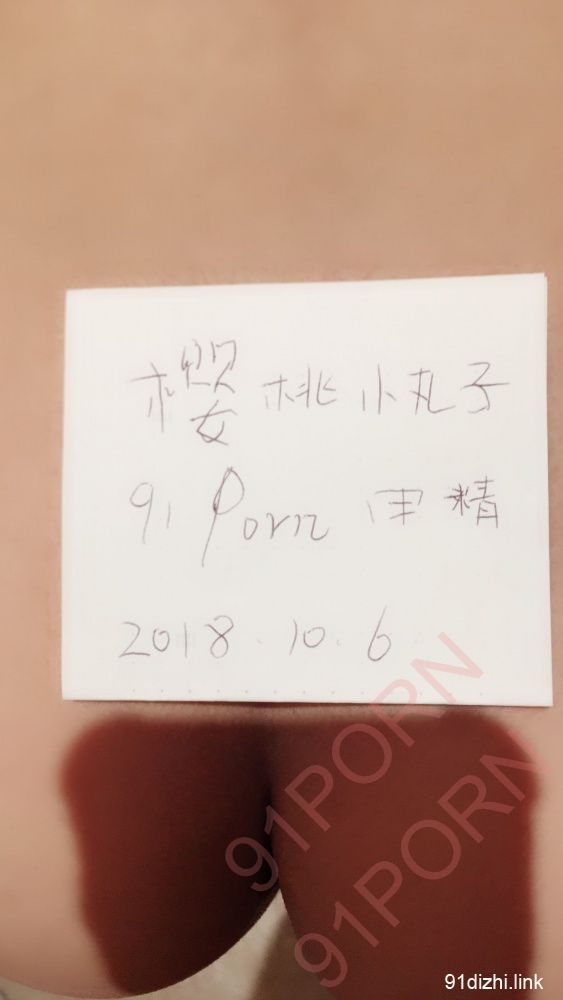 樱桃小丸子
91 Porn 申精
2018.10.6
91PORN
91PORN
91dizhi.link